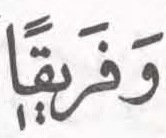 وَفَرِيقًا